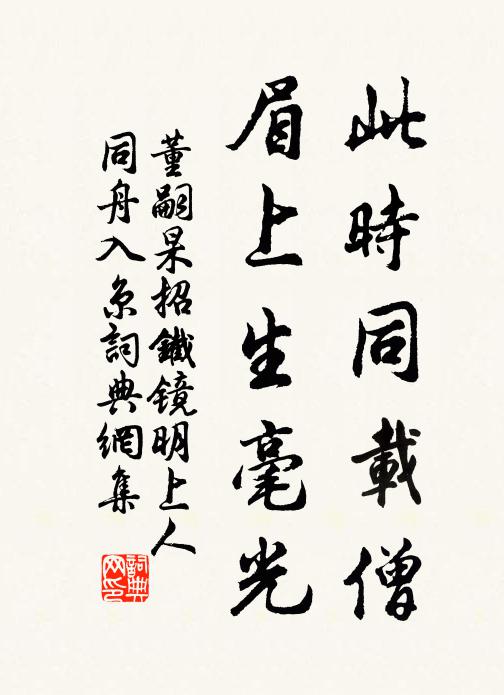 此時同載僧
眉上生毫光
董嗣杲招鐵鏡明上人
同舟入京詞典網集
詞典网印